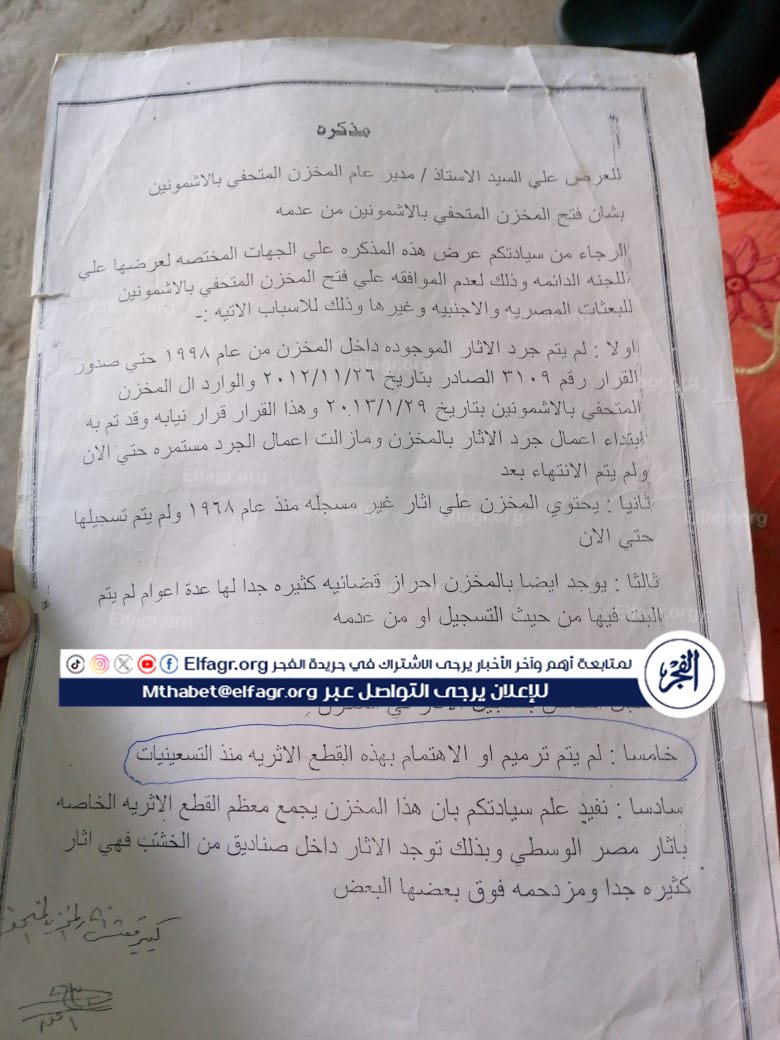 مذكره
للعرض علي السيد الاستاذ / مدير عام المخزن المتحفي بالاشمونين
بشان فتح المخزن المتحفي بالاشمونين من عدمه
الرجاء من سيادتكم عرض هذه المذكره علي الجهات المختصه لعرضها علي
للجنه الدائمه وذلك لعدم الموافقه علي فتح المخزن المتحفي بالاشمونين
للبعثات المصريه والاجنبيه وغيرها وذلك للاسباب الاتيه :-
اولا : لم يتم جرد الاثار الموجوده داخل المخزن من عام ١٩٩٨ حتي صدور
القرار رقم ٣١٠٩ الصادر بتاريخ ٢٠١٢/١١/٢٦ والوارد ال المخزن
المتحفي بالاشمونين بتاريخ ٢٠١٣/١/٢٩ وهذا القرار قرار نيابه وقد تم به
ابتداء اعمال جرد الاثار بالمخزن ومازالت اعمال الجرد مستمره حتي الان
ولم يتم الانتهاء بعد
ثانيا : يحتوي المخزن علي اثار غير مسجله منذ عام ١٩٦٨ ولم يتم تسجيلها
حتي الان
ثالثا : يوجد ايضا بالمخزن احراز قضائيه كثيره جدا لها عدة اعوام لم يتم
البت فيها من حيث التسجيل او من عدمه
لمتابعة أهم وآخر الأخبار يرجى الاشتراك في جريدة الفجر Elfagr.org
للإعلان يرجى التواصل عبر Mthabet@elfagr.org
الفجر
خامسا : لم يتم ترميم او الاهتمام بهذه القطع الاثريه منذ التسعينيات
سادسا : نفيد علم سيادتكم بان هذا المخزن يجمع معظم القطع الاثريه الخاصه
باثار مصر الوسطي وبذلك توجد الاثار داخل صناديق من الخشب فهي اثار
كثيره جدا ومزدحمه فوق بعضها البعض
Elfagr.org